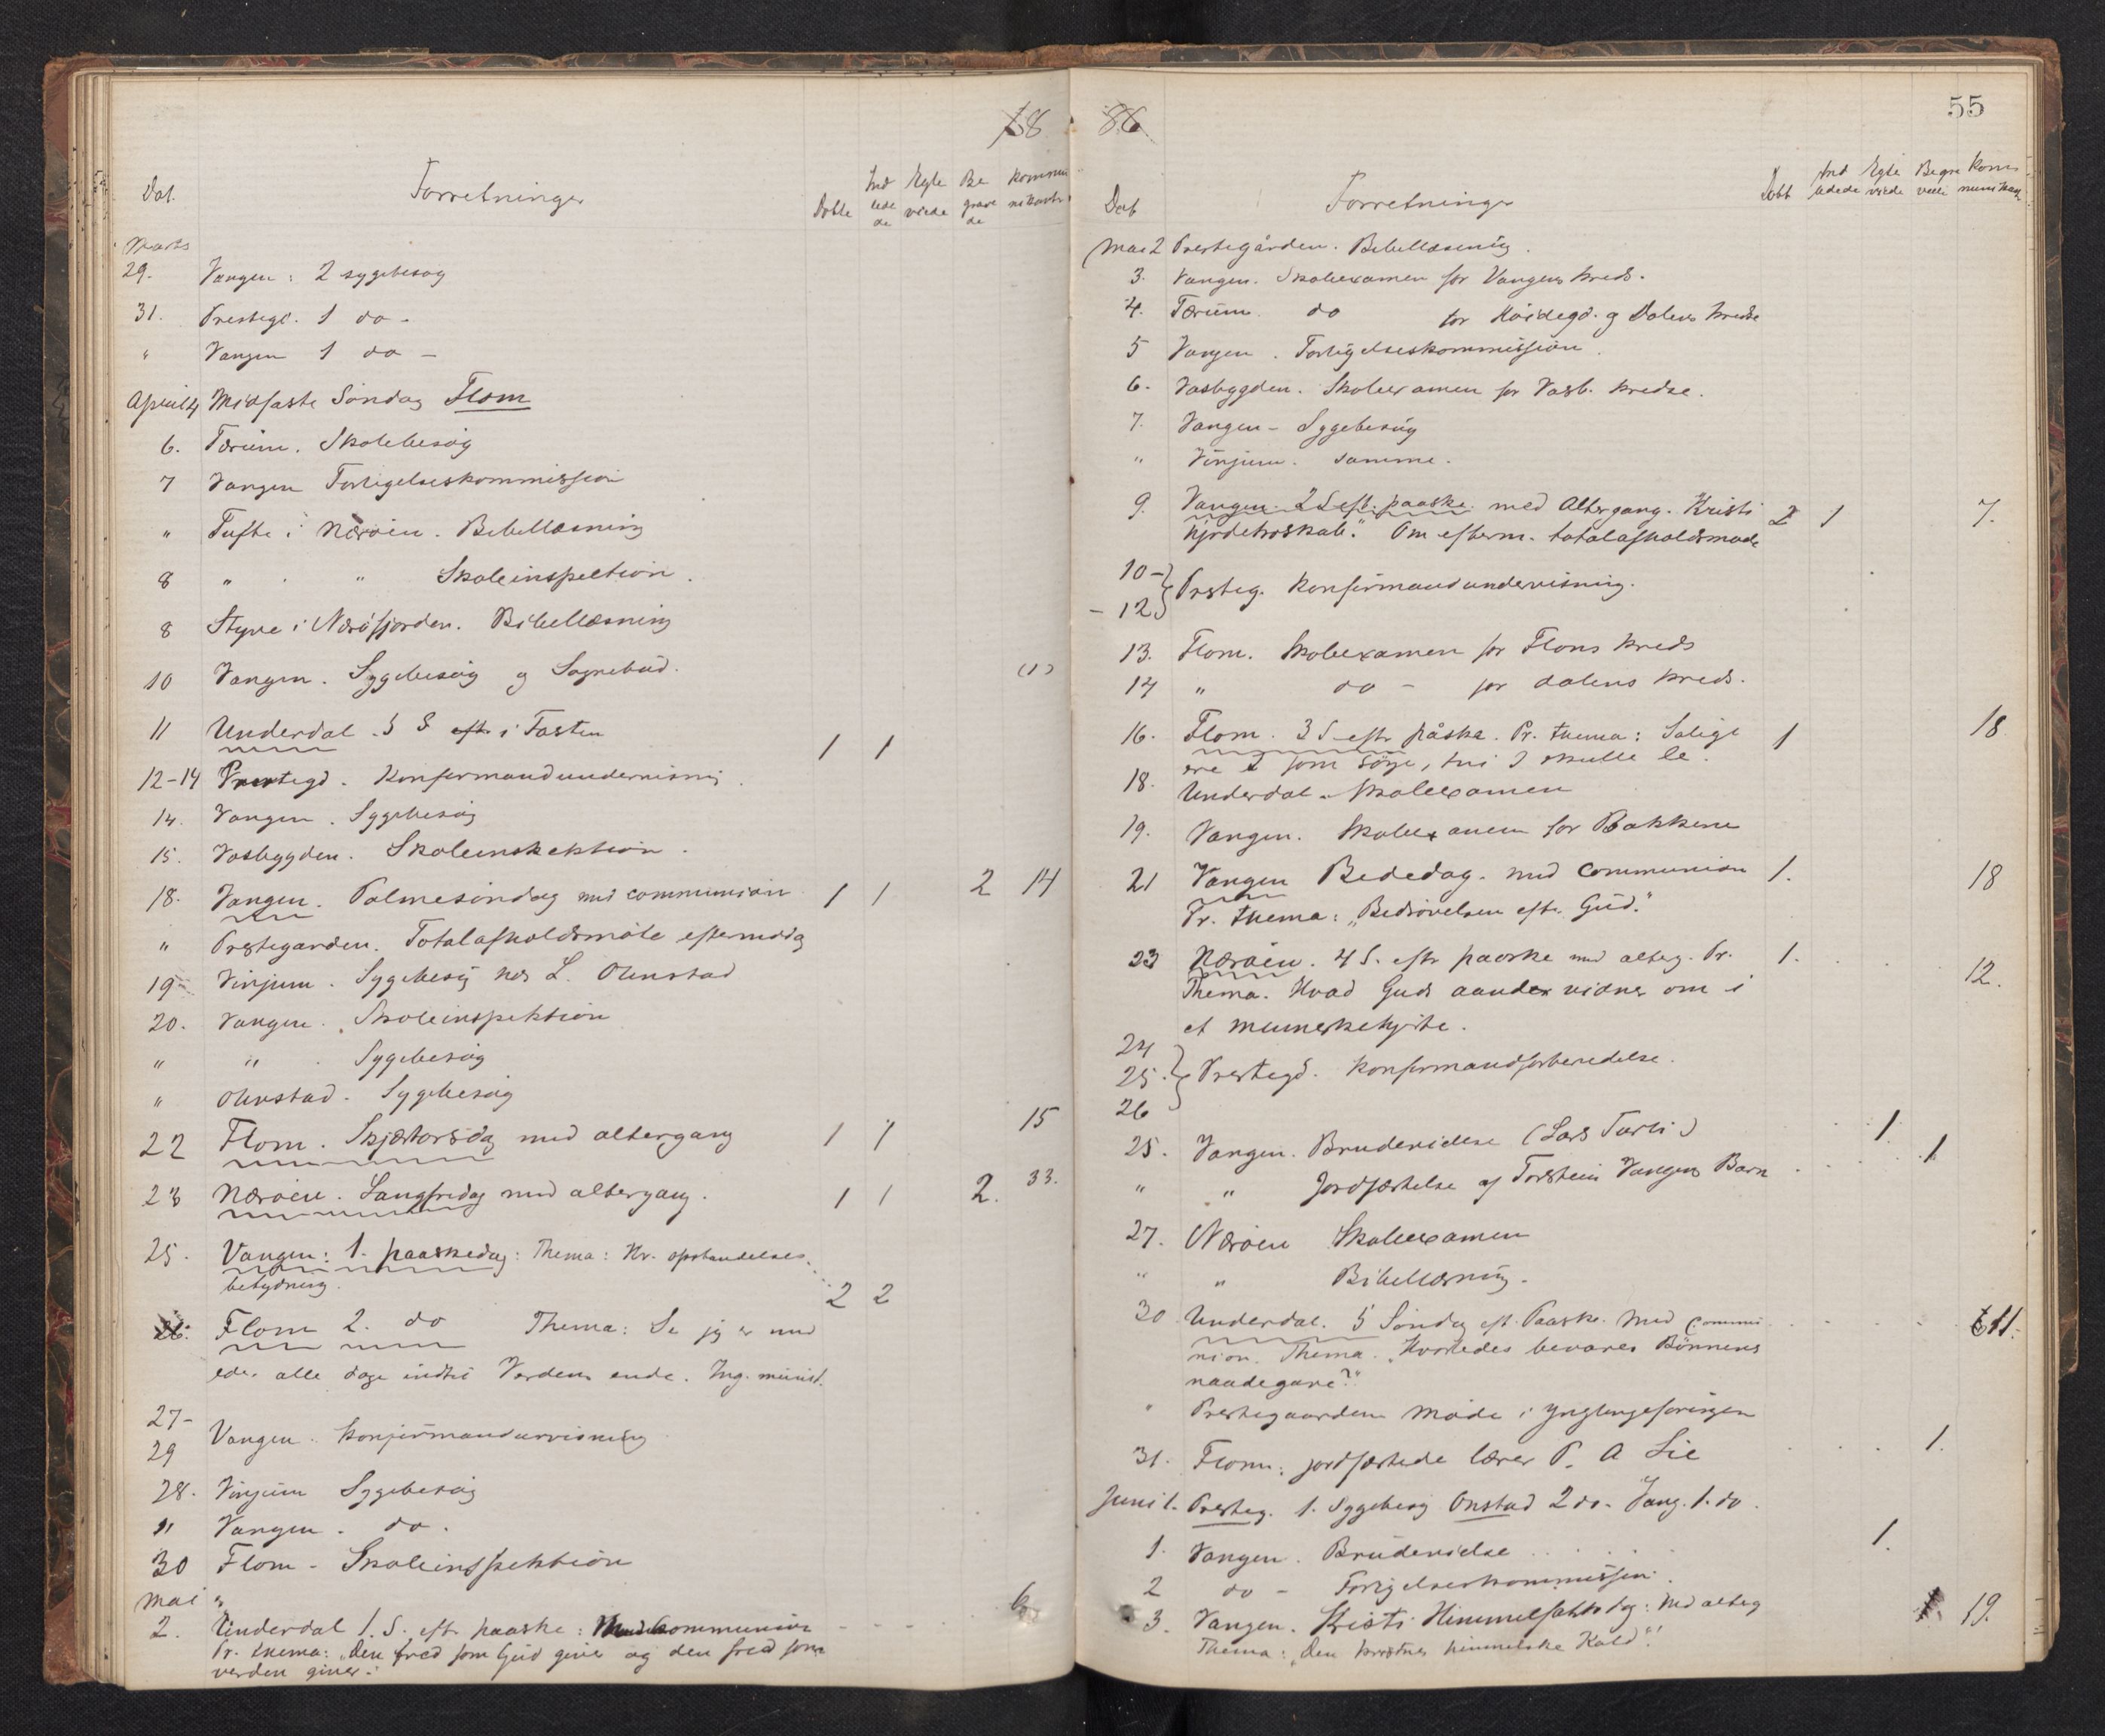 18
Dat.
Forretninger
Døbte
Ind
lede
de
Egte
viede
Be
grave
de
Kommu
nikanter
Marts
29. Vangen: 2 sygebesøg
31. Prestegd. 1 do -
" Vangen 1 do -
April 4 Midfaste Søndag Flom
6. Tærum. Skolebesøg
7 Vangen Forligelseskommission
" Tufte i Nærøen. Bibellæsning
8 " " Skoleinspection.
8 Styve i Nærøfjorden. Bibellæsning
10 Vangen. Sygebesøg og Sognebud. (1)
11 Underdal. 5 S eftr i Fasten 1 1
12-14 Prestegd. Konfirmandundervisning.
14. Vangen. Sygebesøg
15. Vasbygden. Skoleinskektion.
18. Vangen. Palmesøndag med communion 1 1 2 14
" Prestegarden. Totalafholdsmøte eftermidg
19 Vinjum. Sygebesøg hos L. Ohnstad
20. Vangen. Skoleinspektion
" " Sygebesøg
" Ohnstad. Sygebesøg
22 Flom. Skjærtorsdg med altergang 1 1 15
23 Nærøen. Langfredag med altergang. 1 1 2. 33.
25. Vangen: 1. paaskedag: Thema: Kr. opstandelses-
betydning. 2 2
26. Flom 2. do Thema: Se jeg er med
eder alle dage indtil Verdens ende. Ing. minist.
27-
29 Vangen. Konfirmandurvisning
28. Vinjum Sygebesøg
" Vangen. do.
30 Flom - Skoleinspektion
Mai "
2. Underdal 1. S. eftr paaske: Med communion 6
Pr. thema: "Den fred som Gud giver og den fred som
verden giver."
86
55
Dat
Forretninger
Døbt
Ind
ledede
Egte
viede
Begra
vede
Kom
munikan
Mai 2 Prestegården. Bibellæsning.
3. Vangen. Skoleexamen for Vangens kreds.
4. Tærum. do for Høidegd. og Dalens kredse
5 Vangen. Forligelseskommission.
6. Vasbygden. Skoleexamen for Vasb. kredse.
7. Vangen - Sygebesøg
" Vinjum. samme.
9. Vangen. 2 S eft. paaske. med Altergang. Kristi 2 1 7.
hyrdetroskab." Om efterm. totalafholdsmøde
10-
- 12 Presteg. Konfirmandundervisning.
13. Flom. Skolexamen for Floms kreds
14 " do - for dalens kreds.
16. Flom. 3 S eftr påske. Pr. thema: Salige 1 18
ere I som sørge, thi I skulle le.
18. Underdal. Skoleexamen
19. Vangen. Skoleexamen for Bakkene
21 Vangen Bededag. med communion 1. 18
Pr. thema: "Bedrøvelsen eftr Gud."
23 Nærøen. 4 S. eftr paaske med alterg. Pr. 1. 12.
Thema. Hvad Guds aander vidner om i
et menneskehjerte.
24
25. Prestegd. Konfirmandforberedelse.
26
25. Vangen. Brudevielse (Lars Turli) 1
" " Jordfæstelse af Torstein Vangens Barn 1
27. Nærøen Skoleexamen
" " Bibellæsning.
30 Underdal. 5 Søndag eft. Paaske. med commu 11.
nion. Thema. "Hvorledes bevares Bønnens
naadegave?"
" Prestegaarden Møde i Ynglingeforeningen
31. Flom: jordfæstede lærer P. A Lie 1.
Juni 1. Presteg. 1. Sygebesøg Onstad 2 do. Vang. 1. do.
1. Vangen. Brudevielse 1.
2 do - Forligelseskommission.
3. Vangen. Kristi Himmelfartsdag: Med alterg 19.
Thema: "Den kristnes himmelske Kald".